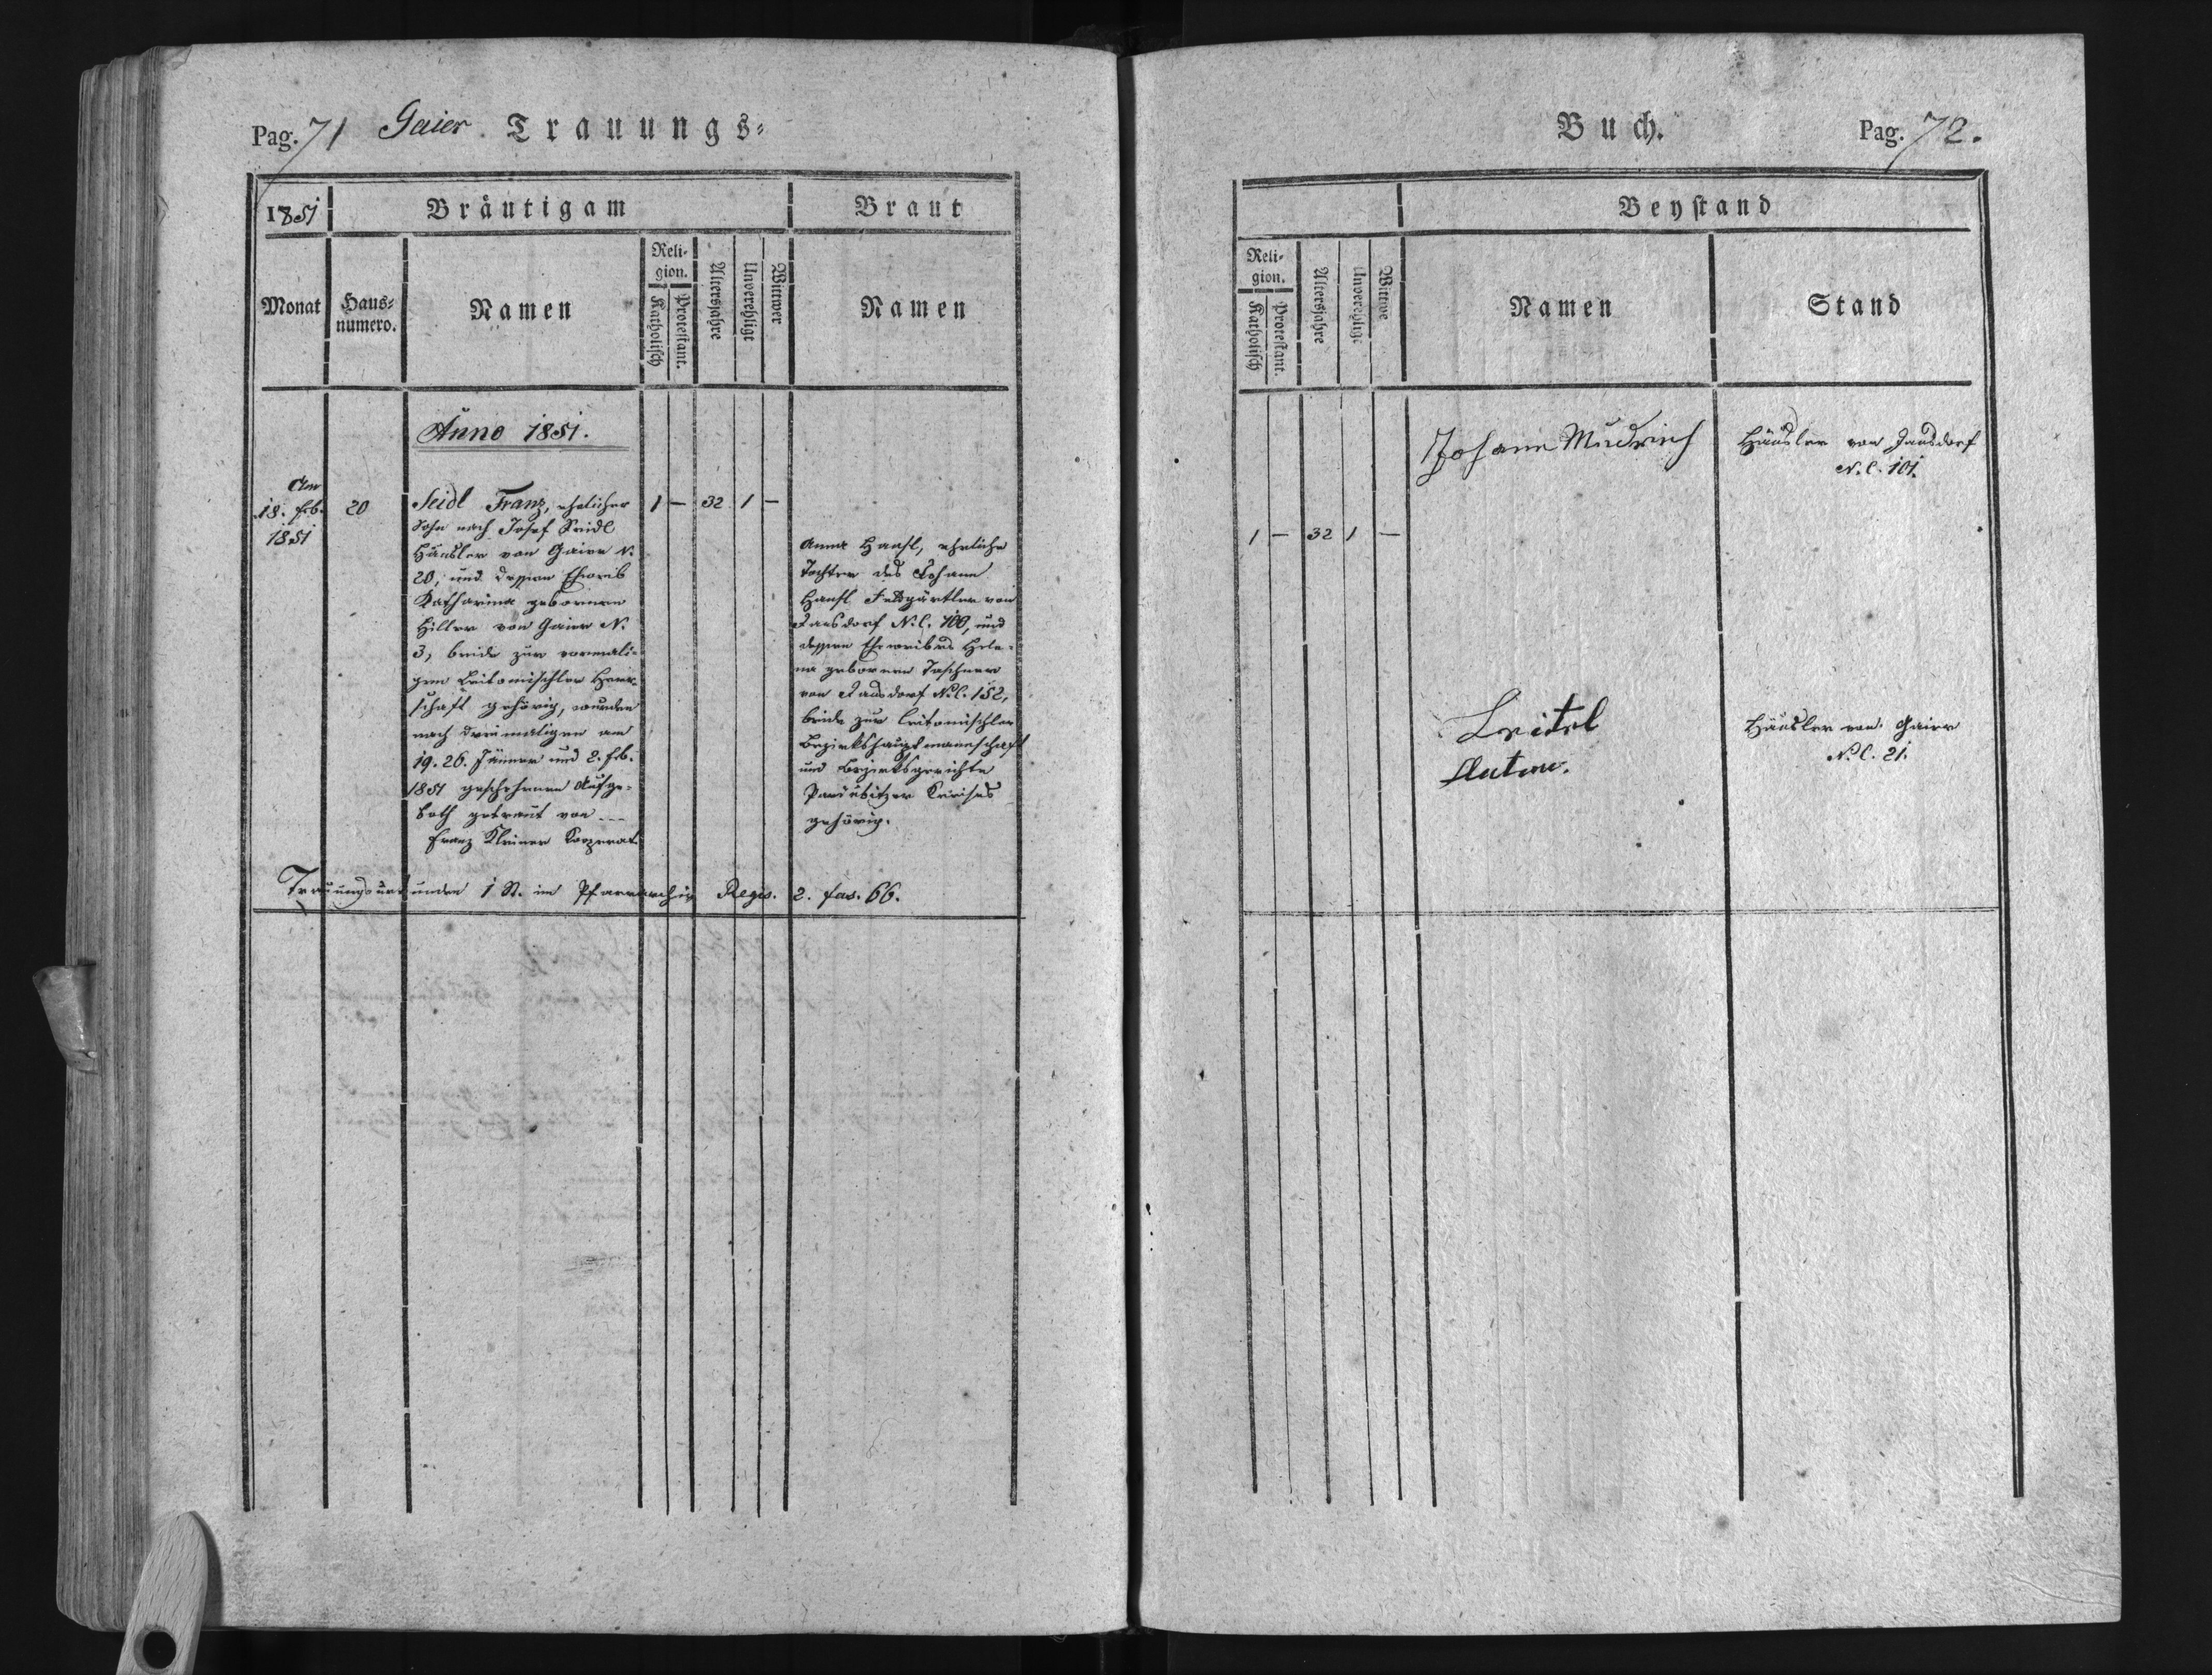 Pag. 71 Gaier Trauungs-
1851 Bräutigam Braut
Monat Haus-
numero. Namen Reli-
gion. Katholisch Protestant. Altersjahre Unverehligt Wittwer Namen
Anno 1851.
Am
18. Feb.
1851
20
Seidl Franz, ehelicher
Sohn nach Josef Seidl
Häusler von Gaier N.
20, und dessen Eheweib
Katharina geborenen
Hiller von Gaier N.
3, beide zur vormali-
gen Leitomischler Herr-
schaft gehörig, wurden
nach dreimaligen am
19. 26. Jänner und 2. Feb.
1851 geschehenen Aufge-
both getraut von ---
Franz Kleiner Kooperat.
1 – 32 1 –
Anna Hansl, eheliche
Tochter des Johann
Hansl Feldgärtler von
Jansdorf N.C. 100, und
dessen Eheweibes Hele-
na geborenen Taschner
von Jansdorf N.C. 152,
beide zur Leitomischler
Bezirkshauptmannschaft
und Bezirksgerichte
Pardubitzer Kreises
gehörig.
Trauungsurkunden 1 St. im Pfarrarchiv Regis. 2. fas. 66.
Buch. Pag. 72.
Beystand
Reli-
gion. Katholisch Protestant. Altersjahre Unverehligt Wittwe Namen Stand
1 – 32 1 –
Johann Mudrich
Häusler von Jansdorf
N.C. 101.
Leitel
Anton.
Häusler von Gaier
N.C. 21.